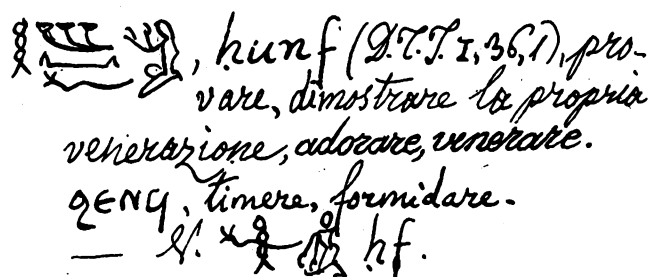 , ḥunf (D.T.T. I, 36, 1), pro-
vare, dimostrare la propria
venerazione, adorare, venerare.
ϩⲉⲛϥ, timere, formidare.
— V. ḥf.